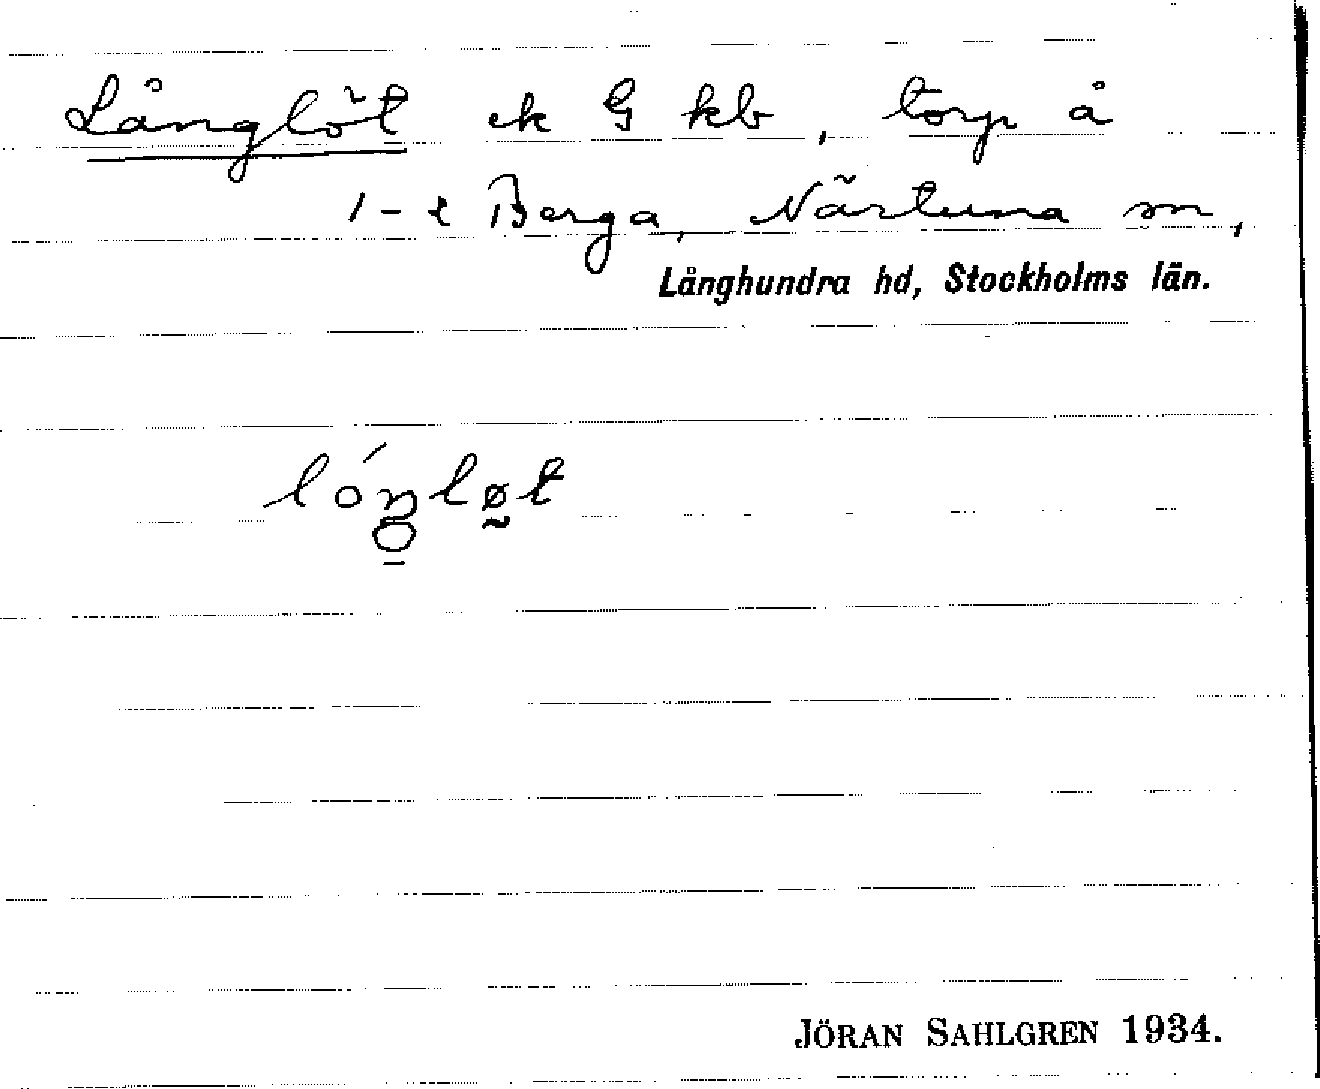 Långlöt ek G kb, torp å
1-e Berga, Närtuna sn,
Långhundra hd, Stockholms län.
JÖRAN SAHLGREN 1934.